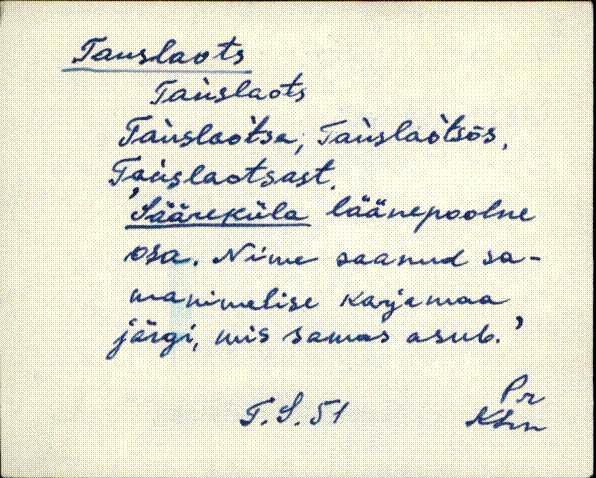 Tauslaots
Taùslaots
Taùslaòtsa, Taùslaòtsõs,
Taùslaotsast.
'Sääreküla läänepoolne
osa. Nime saanud sa-
manimelise karjamaa
järgi, mis samas asub.'
T.S. 51
Pr
Khn